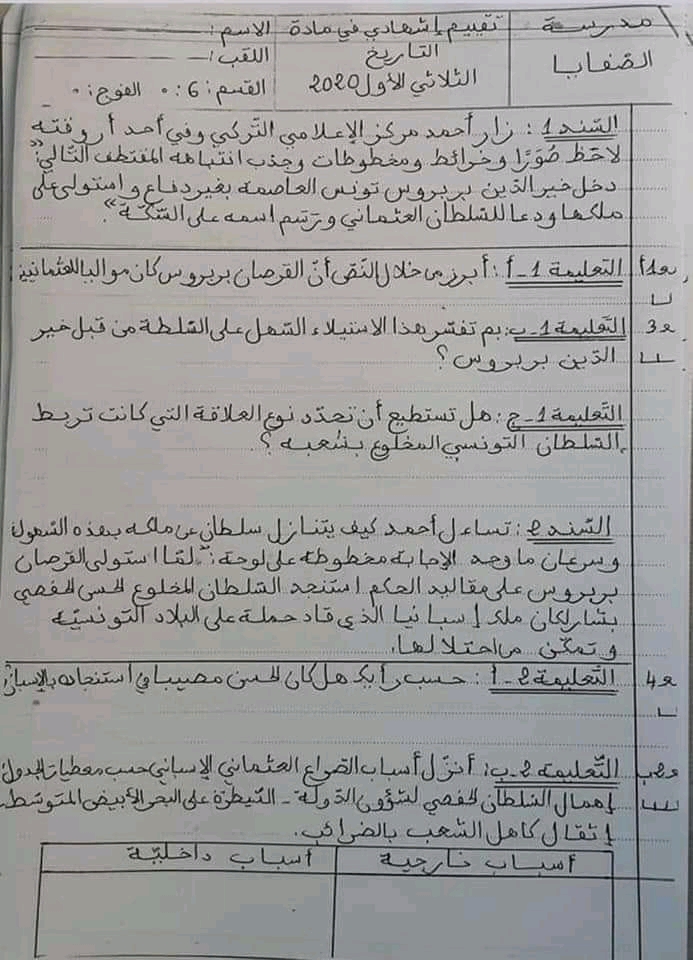 مدرسة
الصّفايا
تقييم إشهادي في مادة
التاريخ
الثلاثي الأول 2020
الاسم:
اللقب:
القسم: 6: الفوج:
السّند 1: زار أحمد مركز الإعلامي التّركي وفي أحد أروقته
لاحظ صُوَرًا وخرائط ومخطوطات وجذب انتباهه المقتطف التّالي: "
دخل خير الدّين بربروس تونس العاصمة بغير دفاع واستولى على
ملكها ودعا للسّلطان العثماني ورسم اسمه على السّكّة".
مع1أ التّعليمة 1-أ: أبرز من خلال النّصّ أنّ القرصان بربروس كان مواليا للعثمانيين
مع3 التّعليمة 1-ب: بم تفسّر هذا الاستيلاء السّهل على السّلطة من قبل خير
الدّين بربروس؟
التّعليمة 1-ج: هل تستطيع أن تحدّد نوع العلاقة التي كانت تربط
السّلطان التونسي المخلوع بشعبه؟.
السّند 2: تساءل أحمد كيف يتنازل سلطان عن ملكه بهذه السّهولة
وسرعان ما وجد الإجابة مخطوطة على لوحة: "لمّا استولى القرصان
بربروس على مقاليد الحكم استنجد السّلطان المخلوع الحسن الحفصي
بشارلكان ملك إسبانيا الذي قاد حملة على البلاد التّونسيّة
وتمكّن من احتلالها.
مع4 التّعليمة 2-أ: حسب رأيك هل كان الحسن مصيبا في استنجاده بالإسبان
مع2ب التّعليمة 2-ب: أنزّل أسباب الصّراع العثماني الإسباني حسب معطيات الجدول:
إهمال السّلطان الحفصي لشؤون الدّولة - السّيطرة على البحر الأبيض المتوسّط.
إثقال كاهل الشّعب بالضّرائب.
أسباب خارجية
أسباب داخليّة